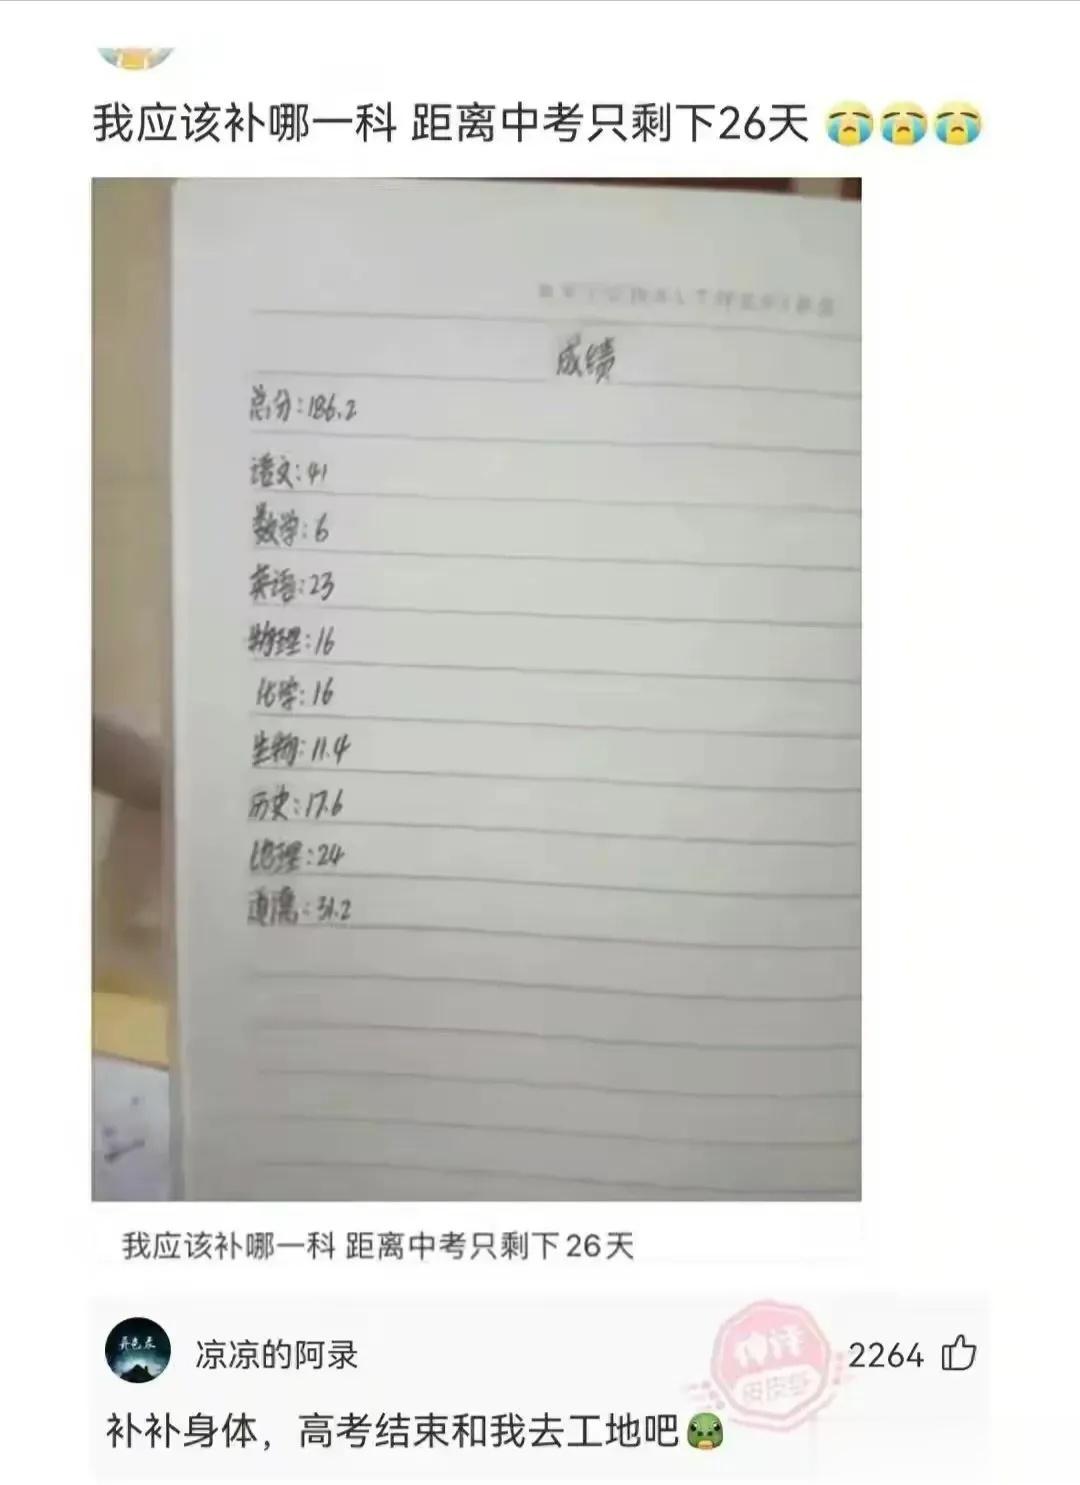 我应该补哪一科 距离中考只剩下26天
成绩
总分:186.2
语文:41
数学:6
英语:23
物理:16
化学:16
生物:11.4
历史:17.6
地理:24
道德:31.2
我应该补哪一科 距离中考只剩下26天
凉凉的阿录
2264
神评
补补身体，高考结束和我去工地吧